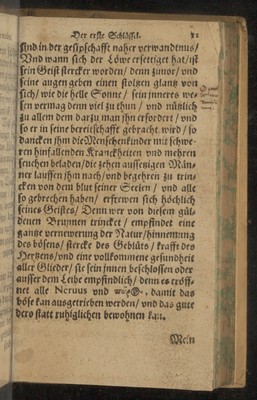 Der erste Schlüssel.
sind in der gesipschafft naher verwandtnus/
Vnd wann sich der Löwe ersettiget hat/ ist
sein Geist stercker worden/ denn zuuor/ vnd
seine augen geben einen stoltzen glantz von
sich/ wie die helle Sonne/ sein inners we-
sen vermag denn viel zu thun/ vnd nützlich
zu allem dem dar zu man jhn erfordert/ vnd
so er in seine bereitschafft gebracht wird/ so
dancken jhm die Menschenkinder mit schwe-
ren hinfallenden Kranckheiten vnd mehren
seuchen beladen/ die zehen aussetzigen Män-
ner lauffen jhm nach/ vnd begehren zu trin-
cken von dem blut seiner Seelen/ vnd alle
so gebrechen haben/ erfrewen sich höchlich
seines Geistes/ Denn wer von diesem gül-
denen Brunnen trincket/ empfindet eine
gantze vernewerung der Natur/ hinnemung
des bösens/ stercke des Geblüts/ krafft des
Hertzens/ vnd eine vollkommene gesundheit
aller Glieder/ sie sein jnnen beschlossen oder
ausser dem Leibe empfindlich/ denn es eröff-
net alle Neruus vnd damit das
böse kan ausgetrieben werden/ vnd das gute
dero statt ruhiglichen bewohnen kan.
Mein